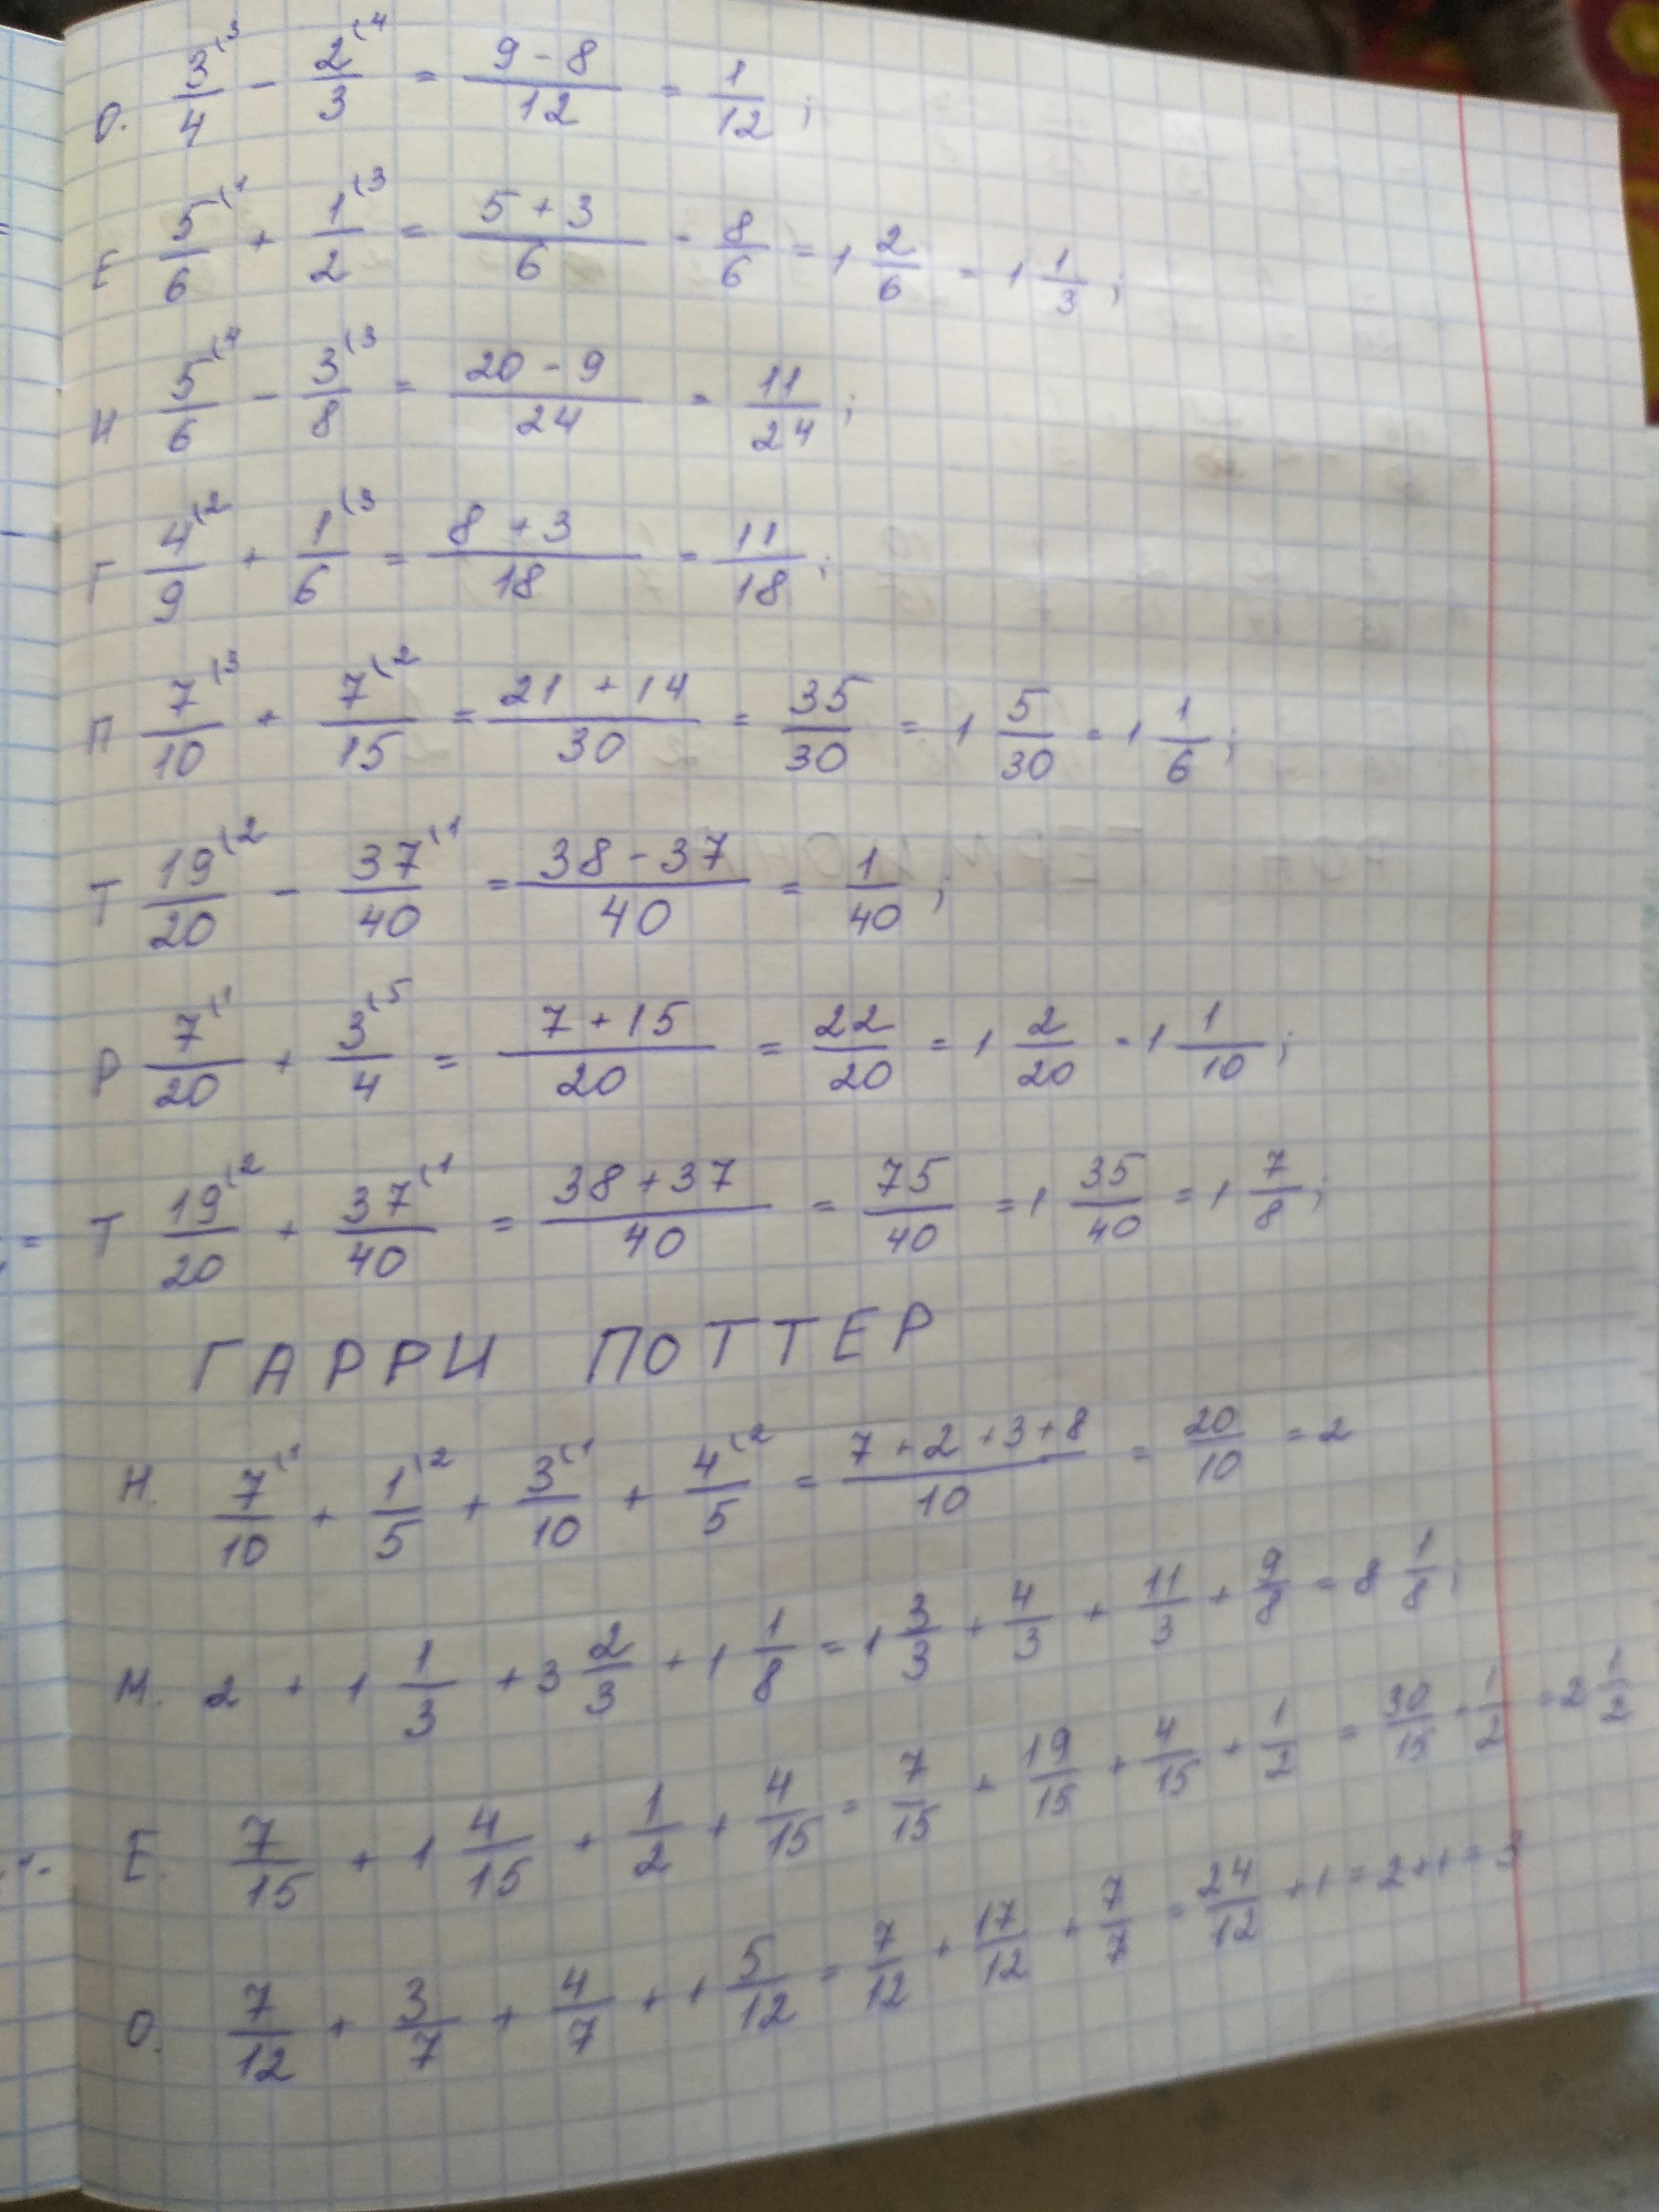 О. 3⁽³/4 - 2⁽⁴/3 = 9-8/12 = 1/12;
Е 5⁽¹/6 + 1⁽³/2 = 5+3/6 - 8/6 = 1 2/6 = 1 1/3;
И 5⁽⁴/6 - 3⁽³/8 = 20-9/24 = 11/24;
Г 4⁽²/9 + 1⁽³/6 = 8+3/18 = 11/18;
П 7⁽³/10 + 7⁽²/15 = 21+14/30 = 35/30 = 1 5/30 = 1 1/6;
Т 19⁽²/20 - 37⁽¹/40 = 38-37/40 = 1/40;
Р 7⁽¹/20 + 3⁽⁵/4 = 7+15/20 = 22/20 = 1 2/20 = 1 1/10;
Т 19⁽²/20 + 37⁽¹/40 = 38+37/40 = 75/40 = 1 35/40 = 1 7/8;
ГАРРИ ПОТТЕР
Н. 7⁽¹/10 + 1⁽²/5 + 3⁽¹/10 + 4⁽²/5 = 7+2+3+8/10 = 20/10 = 2
М. 2 + 1 1/3 + 3 2/3 + 1 1/8 = 1 3/3 + 4/3 + 11/3 + 9/8 = 8 1/8;
Е. 7/15 + 1 4/15 + 1/2 + 4/15 = 7/15 + 19/15 + 4/15 + 1/2 = 30/15 + 1/2 = 2 1/2
О. 7/12 + 3/7 + 4/7 + 1 5/12 = 7/12 + 17/12 + 7/7 = 24/12 + 1 = 2+1 = 3